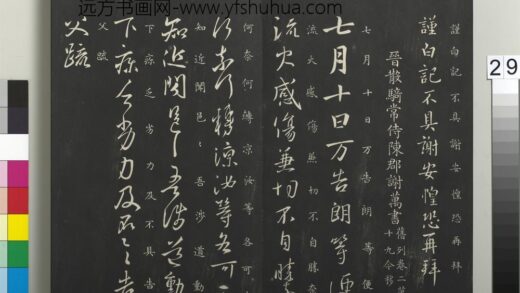 远方书画网-www.yfshuhua.com
29
謹白記不具謝安惶恐再拜
謹白記不具謝安惶恐再拜
晉散騎常侍陳郡謝萬書
舊列卷一
十九今移
七月十日万告朗等便
七月十日万告朗等便
流火感傷兼切不自勝奈
流火感傷兼切不自勝
何奈何轉涼汝等各可
何奈何轉涼汝等各可
知近聞邑邑吾涉道動
知近聞邑邑吾涉道動
下疾乏劣力及不具告
下疾乏劣力及不具告
父疏
父疏